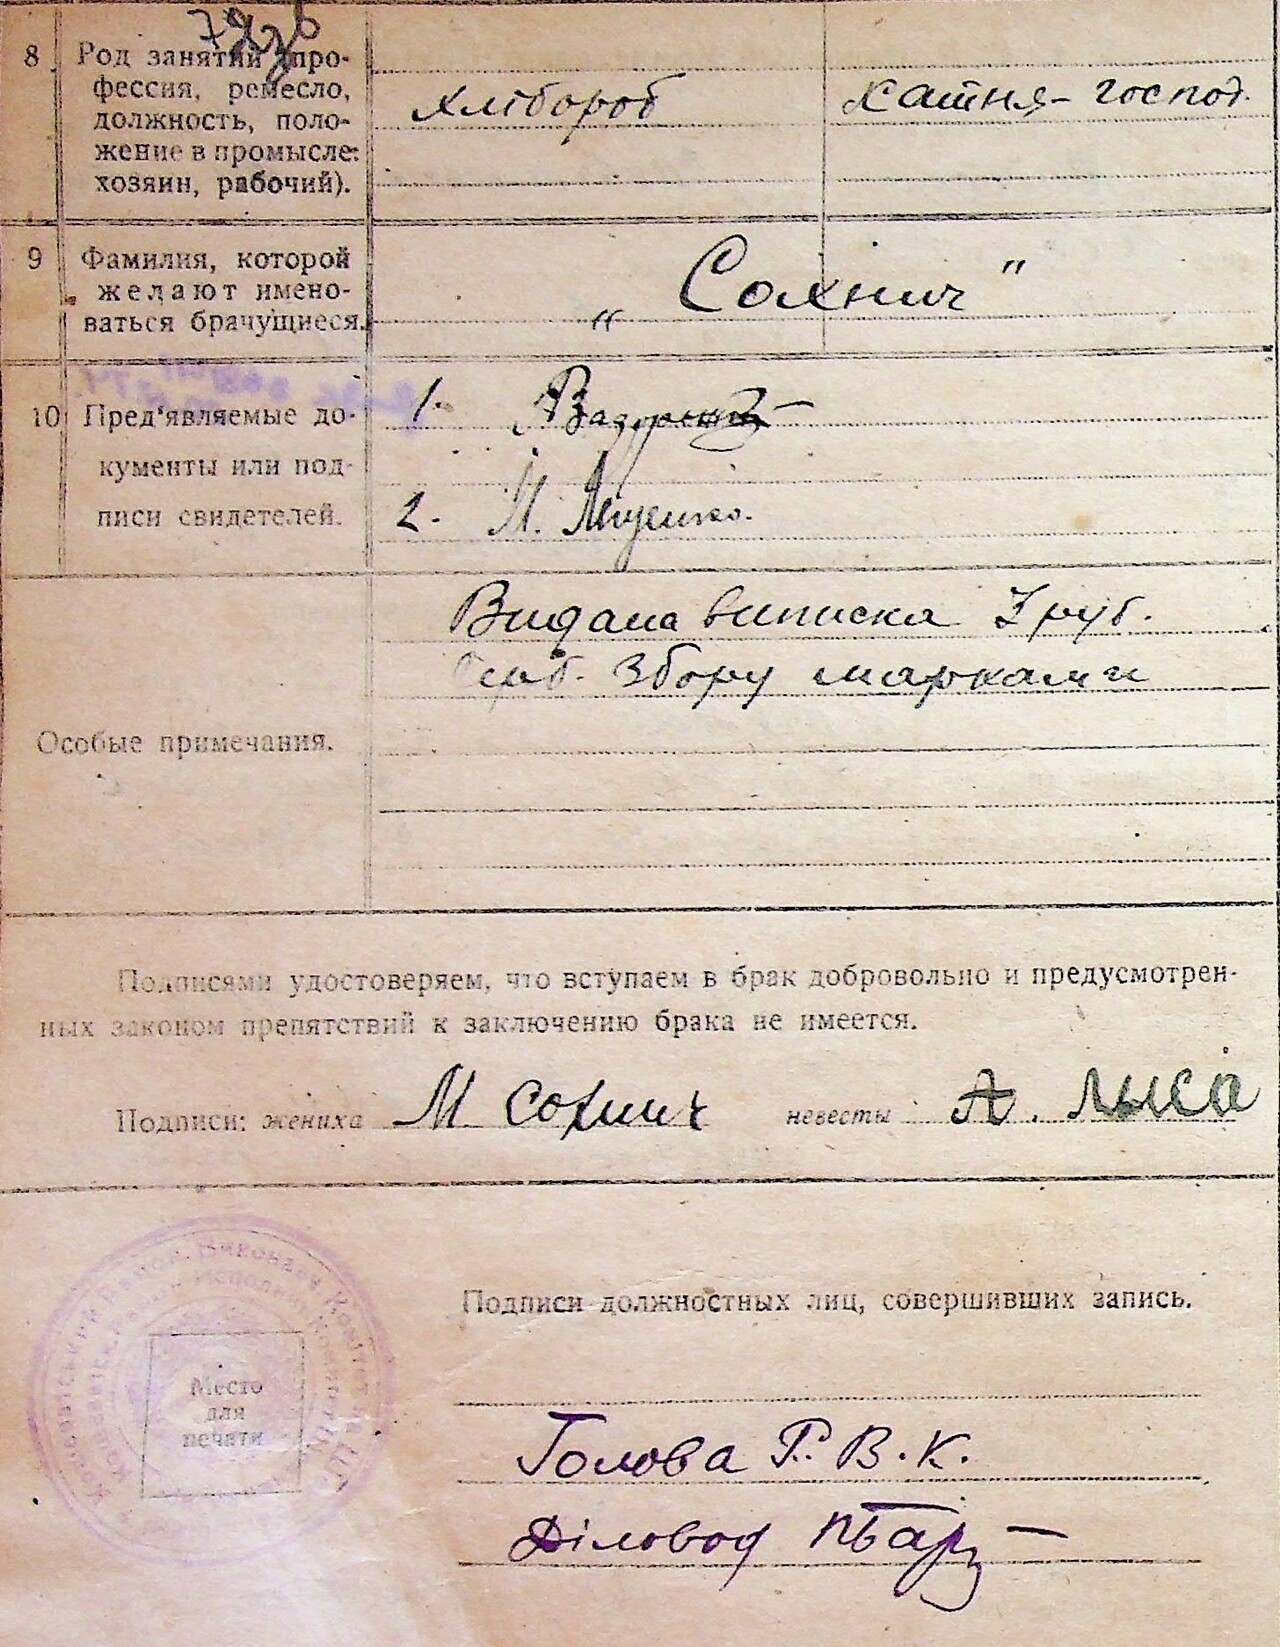 8 Род занятий (про-
фессия, ремесло,
должность, поло-
жение в промысле:
хозяин, рабочий).
хлібороб
хатня-господ.
9 Фамилия, которой
желают имено-
ваться брачущиеся.
„Сохнич"
10 Пред'являемые до-
кументы или под-
писи свидетелей.
1.
2. И.
Особые примечания.
Видана виписка 3 руб.
Герб. Збору марками
Подписями удостоверяем, что вступаем в брак добровольно и предусмотрен-
ных законом препятствий к заключению брака не имеется.
Подписи: жениха М Сохнич невесты А. Лыса
Подписи должностных лиц, совершивших запись.
Место
для
печати
Голова Р.В.К.
Діловод